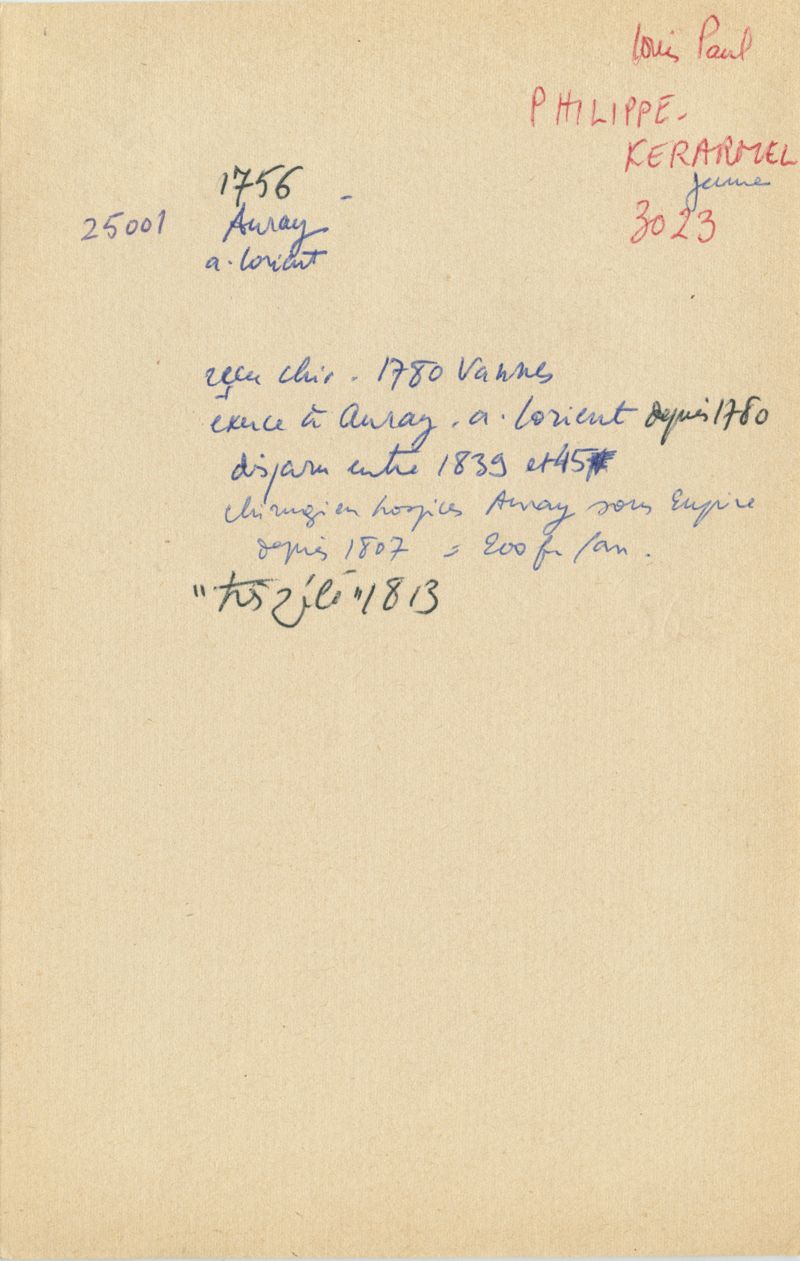 Louis Paul
PHILIPPE-
KERARMEL
jeune
3023
1756 -
25001 Auray
a. Lorient
reçu chir. 1780 Vannes
exerce à Auray. a. Lorient depuis 1780
disparu entre 1839 et 45
chirurgien hospices Auray sous Empire
depuis 1807 = 200 fr /an.
"très zélé" 1813